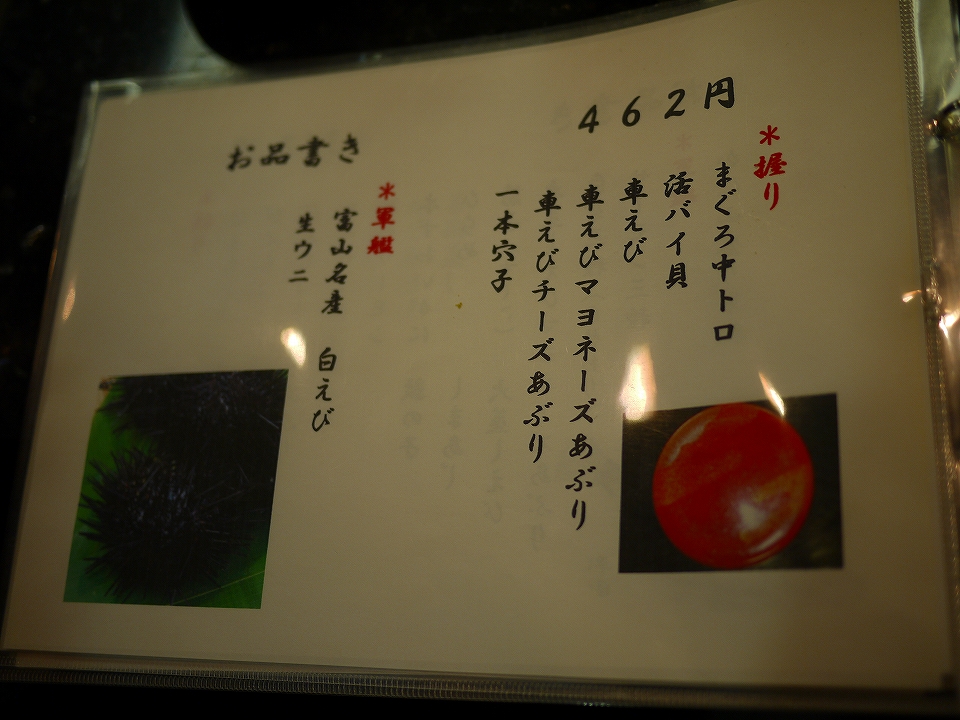 462円
*握り
まぐろ中トロ
活バイ貝
車えび
車えびマヨネーズあぶり
車えびチーズあぶり
一本穴子
お品書き
*軍艦
富山名産 白えび
生ウニ